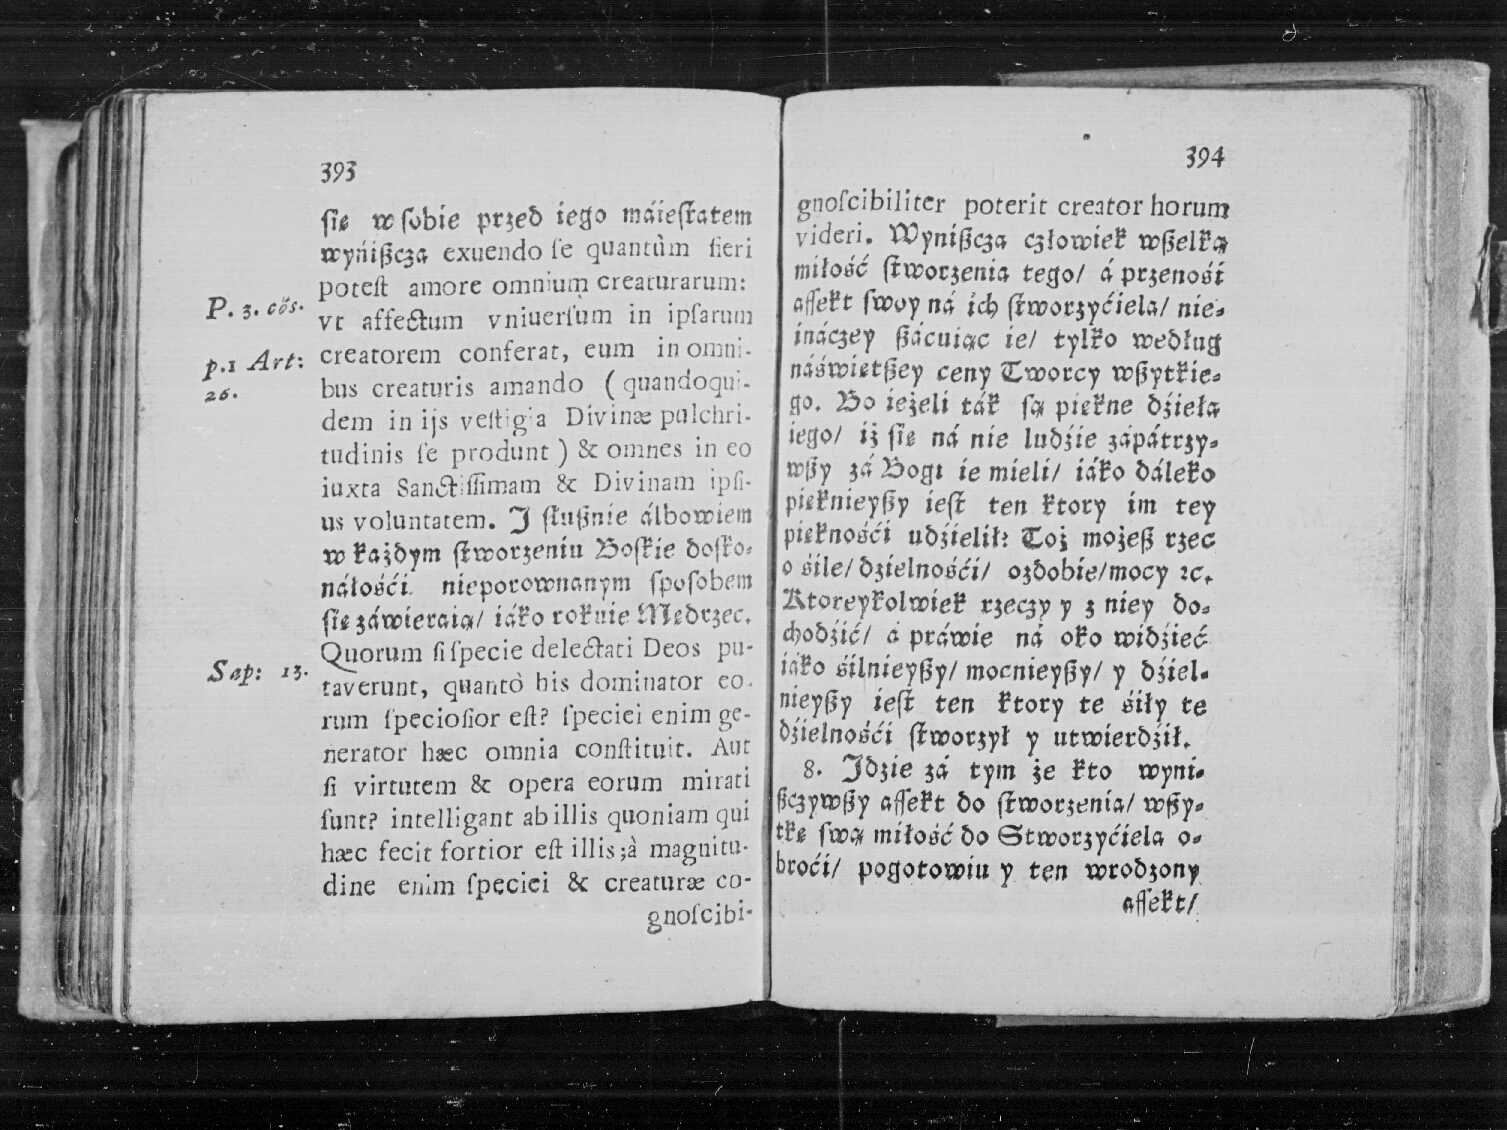 393
ſię w ſobie przed iego máieſtatem
wyńißcza exuendo ſe quantùm fieri
poteſt amore omnium creaturarum:
P. 3. cōs.
vt affectum vniuerſum in ipſarum
creatorem conferat, eum in omni-
p.1 Art:
26.
bus creaturis amando (quandoqui-
dem in ijs veſtigia Divinæ pulchri-
tudinis ſe produnt) & omnes in eo
iuxta Sanctiſſimam & Divinam ipſi-
us voluntatem. J ſłußnie álbowiem
w każdym ſtworzeniu Boſkie doſko-
náłośći nieporownanym ſpoſobem
ſię záwieraią/ iáko rokuie Mędrzec.
Sap: 13.
Quorum ſi ſpecie delectati Deos pu-
taverunt, quantò his dominator eo-
rum ſpecioſior eſt? ſpeciei enim ge-
nerator hæc omnia conſtituit. Aut
ſi virtutem & opera eorum mirati
ſunt? intelligant ab illis quoniam qui
hæc fecit fortior eſt illis;à magnitu-
dine enim ſpeciei & creaturæ co-
gnoſcibi-
394
gnoſcibiliter poterit creator horum
videri. Wynißcza człowiek wßelką
miłość ſtworzenia tego/ á przenośi
affekt ſwoy ná ich ſtworzyćiela/ nie-
ináczey ßácuiąc ie/ tylko według
náświętßey ceny Tworcy wßytkie-
go. Bo ieżeli ták ſą piękne dźieła
iego/ iż ſię ná nie ludźie zápátrzy-
wßy zá Bogi ie mieli/ iáko dáleko
pięknieyßy ieſt ten ktory im tey
pięknośći udźielił: Toż możeß rzec
o śile/ dzielnośći/ ozdobie/ mocy ꝛc.
Ktoreykolwiek rzeczy y z niey do-
chodźić/ á práwie ná oko widźieć
iáko śilnieyßy/ mocnieyßy/ y dźiel-
nieyßy ieſt ten ktory te śiły te
dźielnośći ſtworzył y utwierdźił.
8. Jdzie zá tym że kto wyni-
ßczywßy affekt do ſtworzenia/ wßy-
tkę ſwą miłość do Stworzyćiela o-
broći/ pogotowiu y ten wrodzony
affekt/